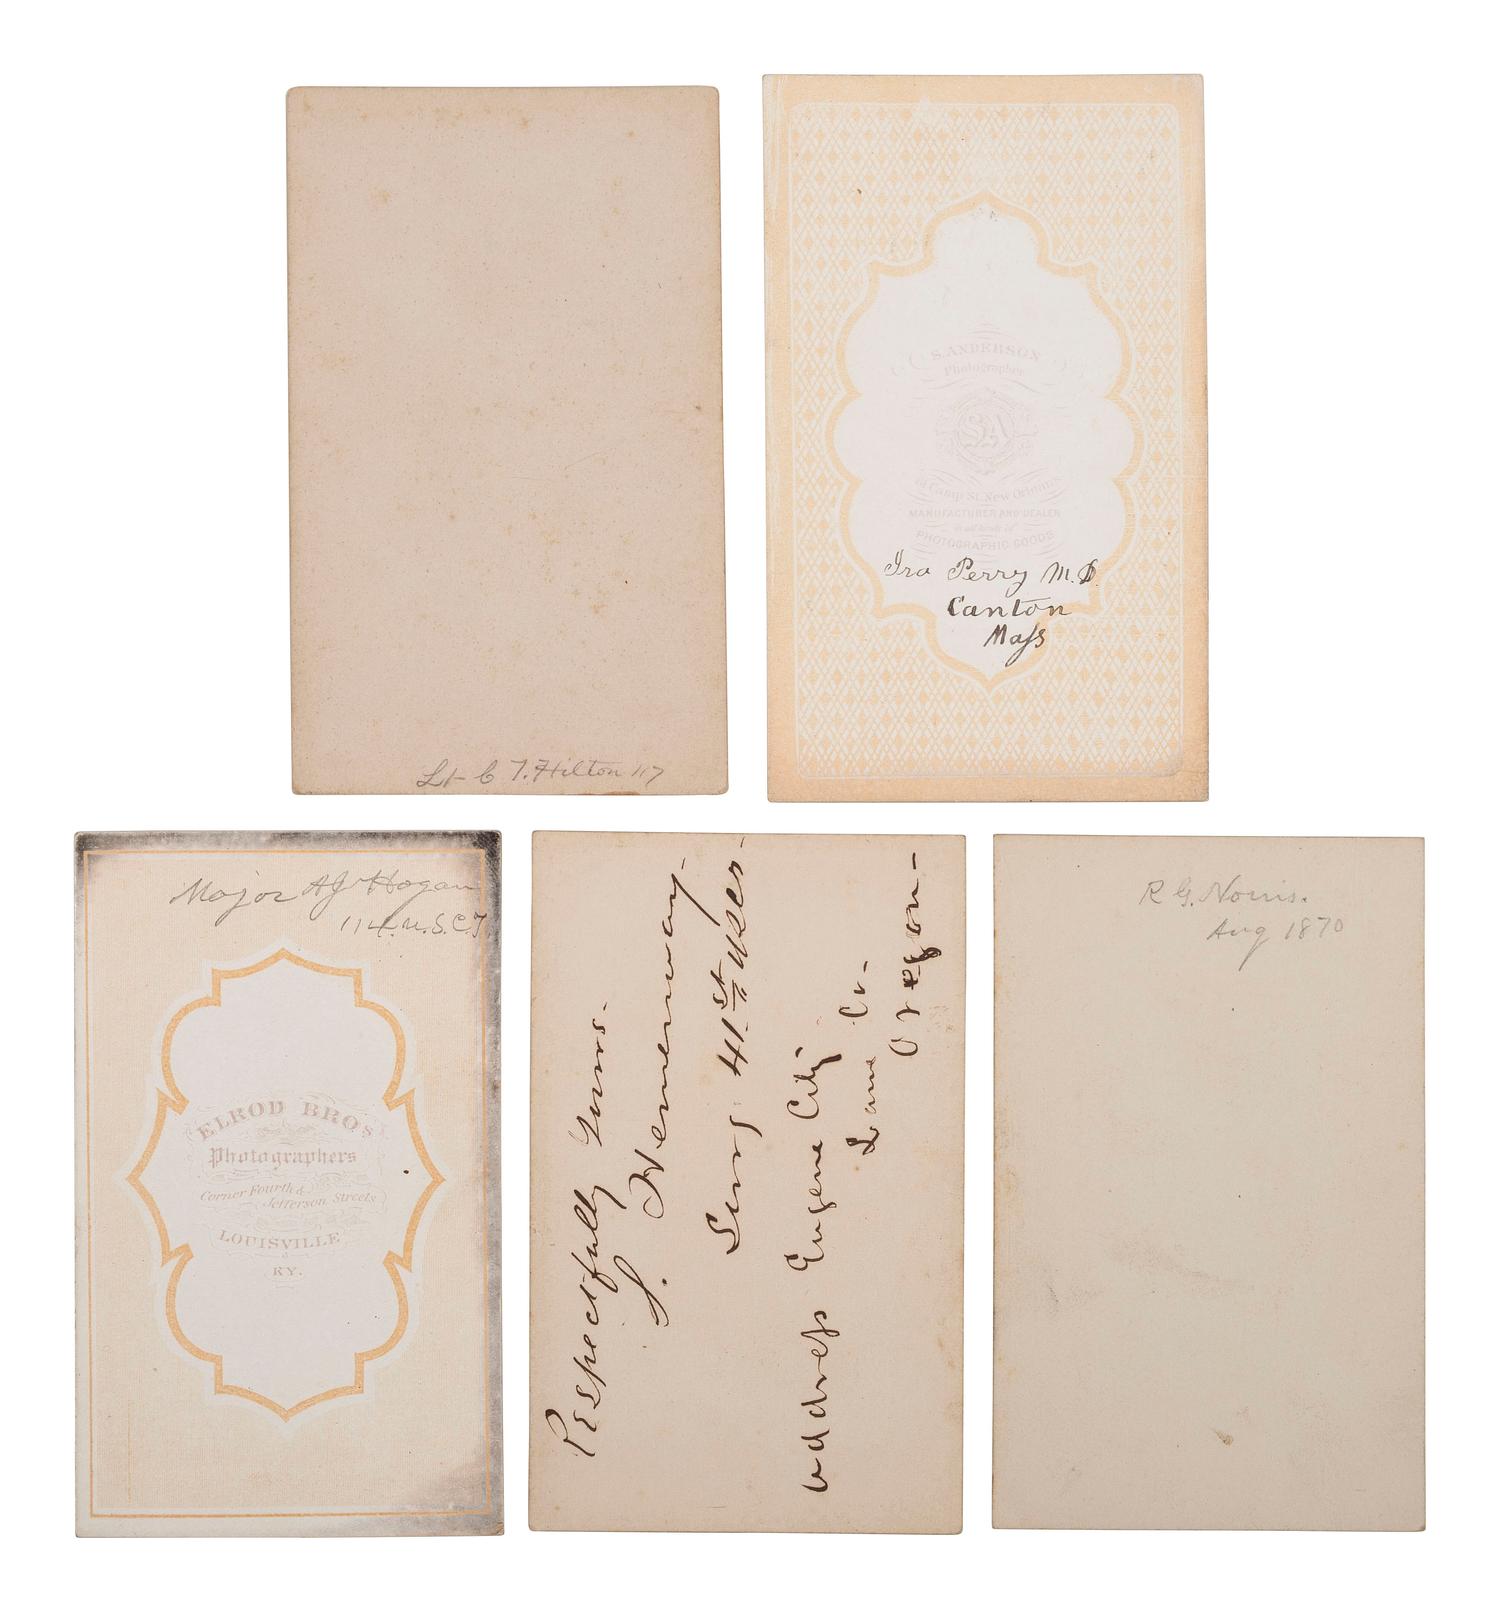 Lt C T. Hilton 117
S. ANDERSON
Photographer
SA
Camp St. New Orleans
MANUFACTURER AND DEALER
in all kinds of
PHOTOGRAPHIC GOODS
Ira Perry M.D.
Canton
Mass
Major AJ Hogan
114. U.S.C.T.
ELROD BRO'S
Photographers
Corner Fourth &
Jefferson Streets
LOUISVILLE
KY.
Respectfully Yours.
S. Hemenway-
Surg 41st USCT-
address Eugene City
Lane Co-
Oregon-
R G. Norris.
Aug 1870